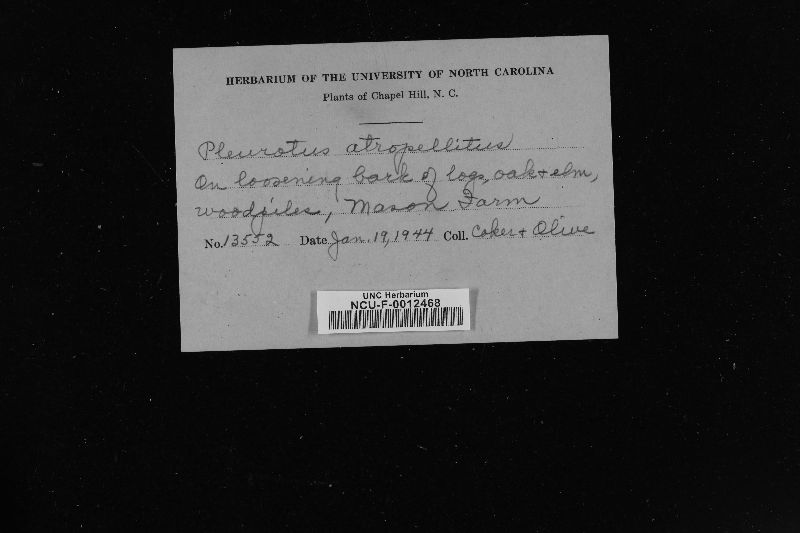 HERBARIUM OF THE UNIVERSITY OF NORTH CAROLINA
Plants of Chapel Hill, N. C.
Pleurotus atropellitus
On loosening bark of logs, oak + elm,
woodpiles, Mason Farm
No. 13552 Date Jan. 19, 1944 Coll. Coker + Olive
UNC Herbarium
NCU-F-0012468